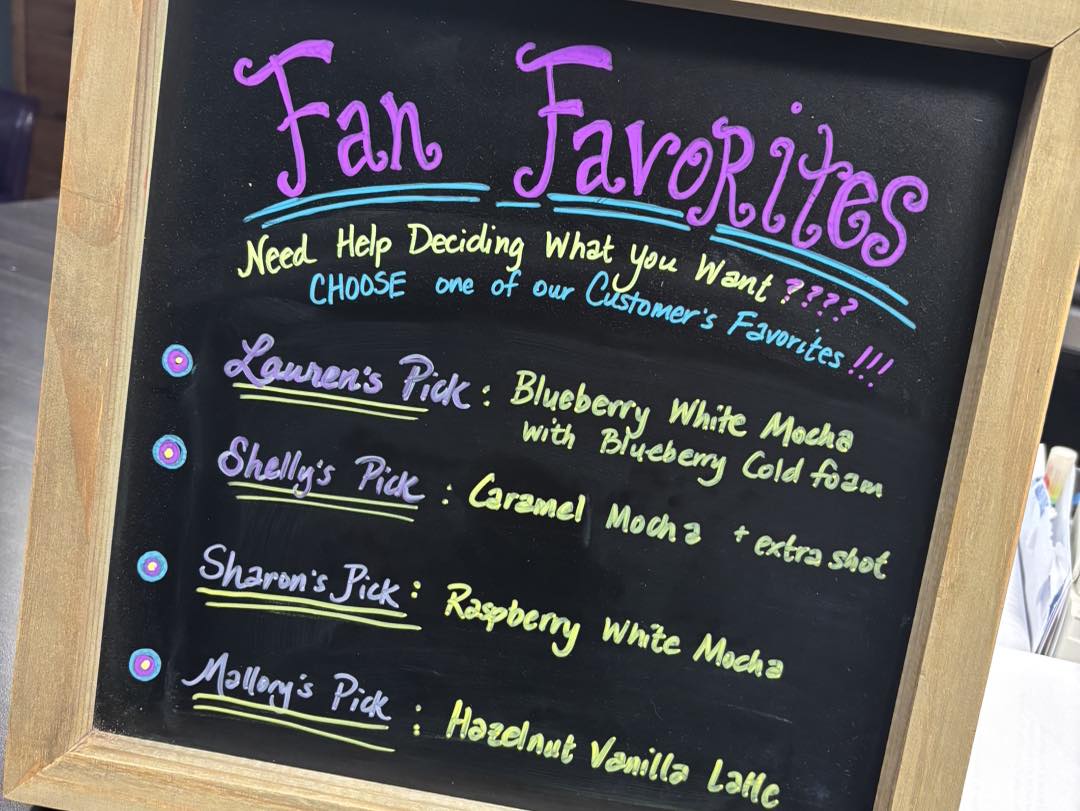 Fan Favorites
Need Help Deciding What You Want ????
CHOOSE one of our Customer's Favorites !!!
Lauren's Pick : Blueberry White Mocha
with Blueberry Cold foam
Shelly's Pick : Caramel Mocha + extra shot
Sharon's Pick : Raspberry White Mocha
Mallory's Pick : Hazelnut Vanilla Latte